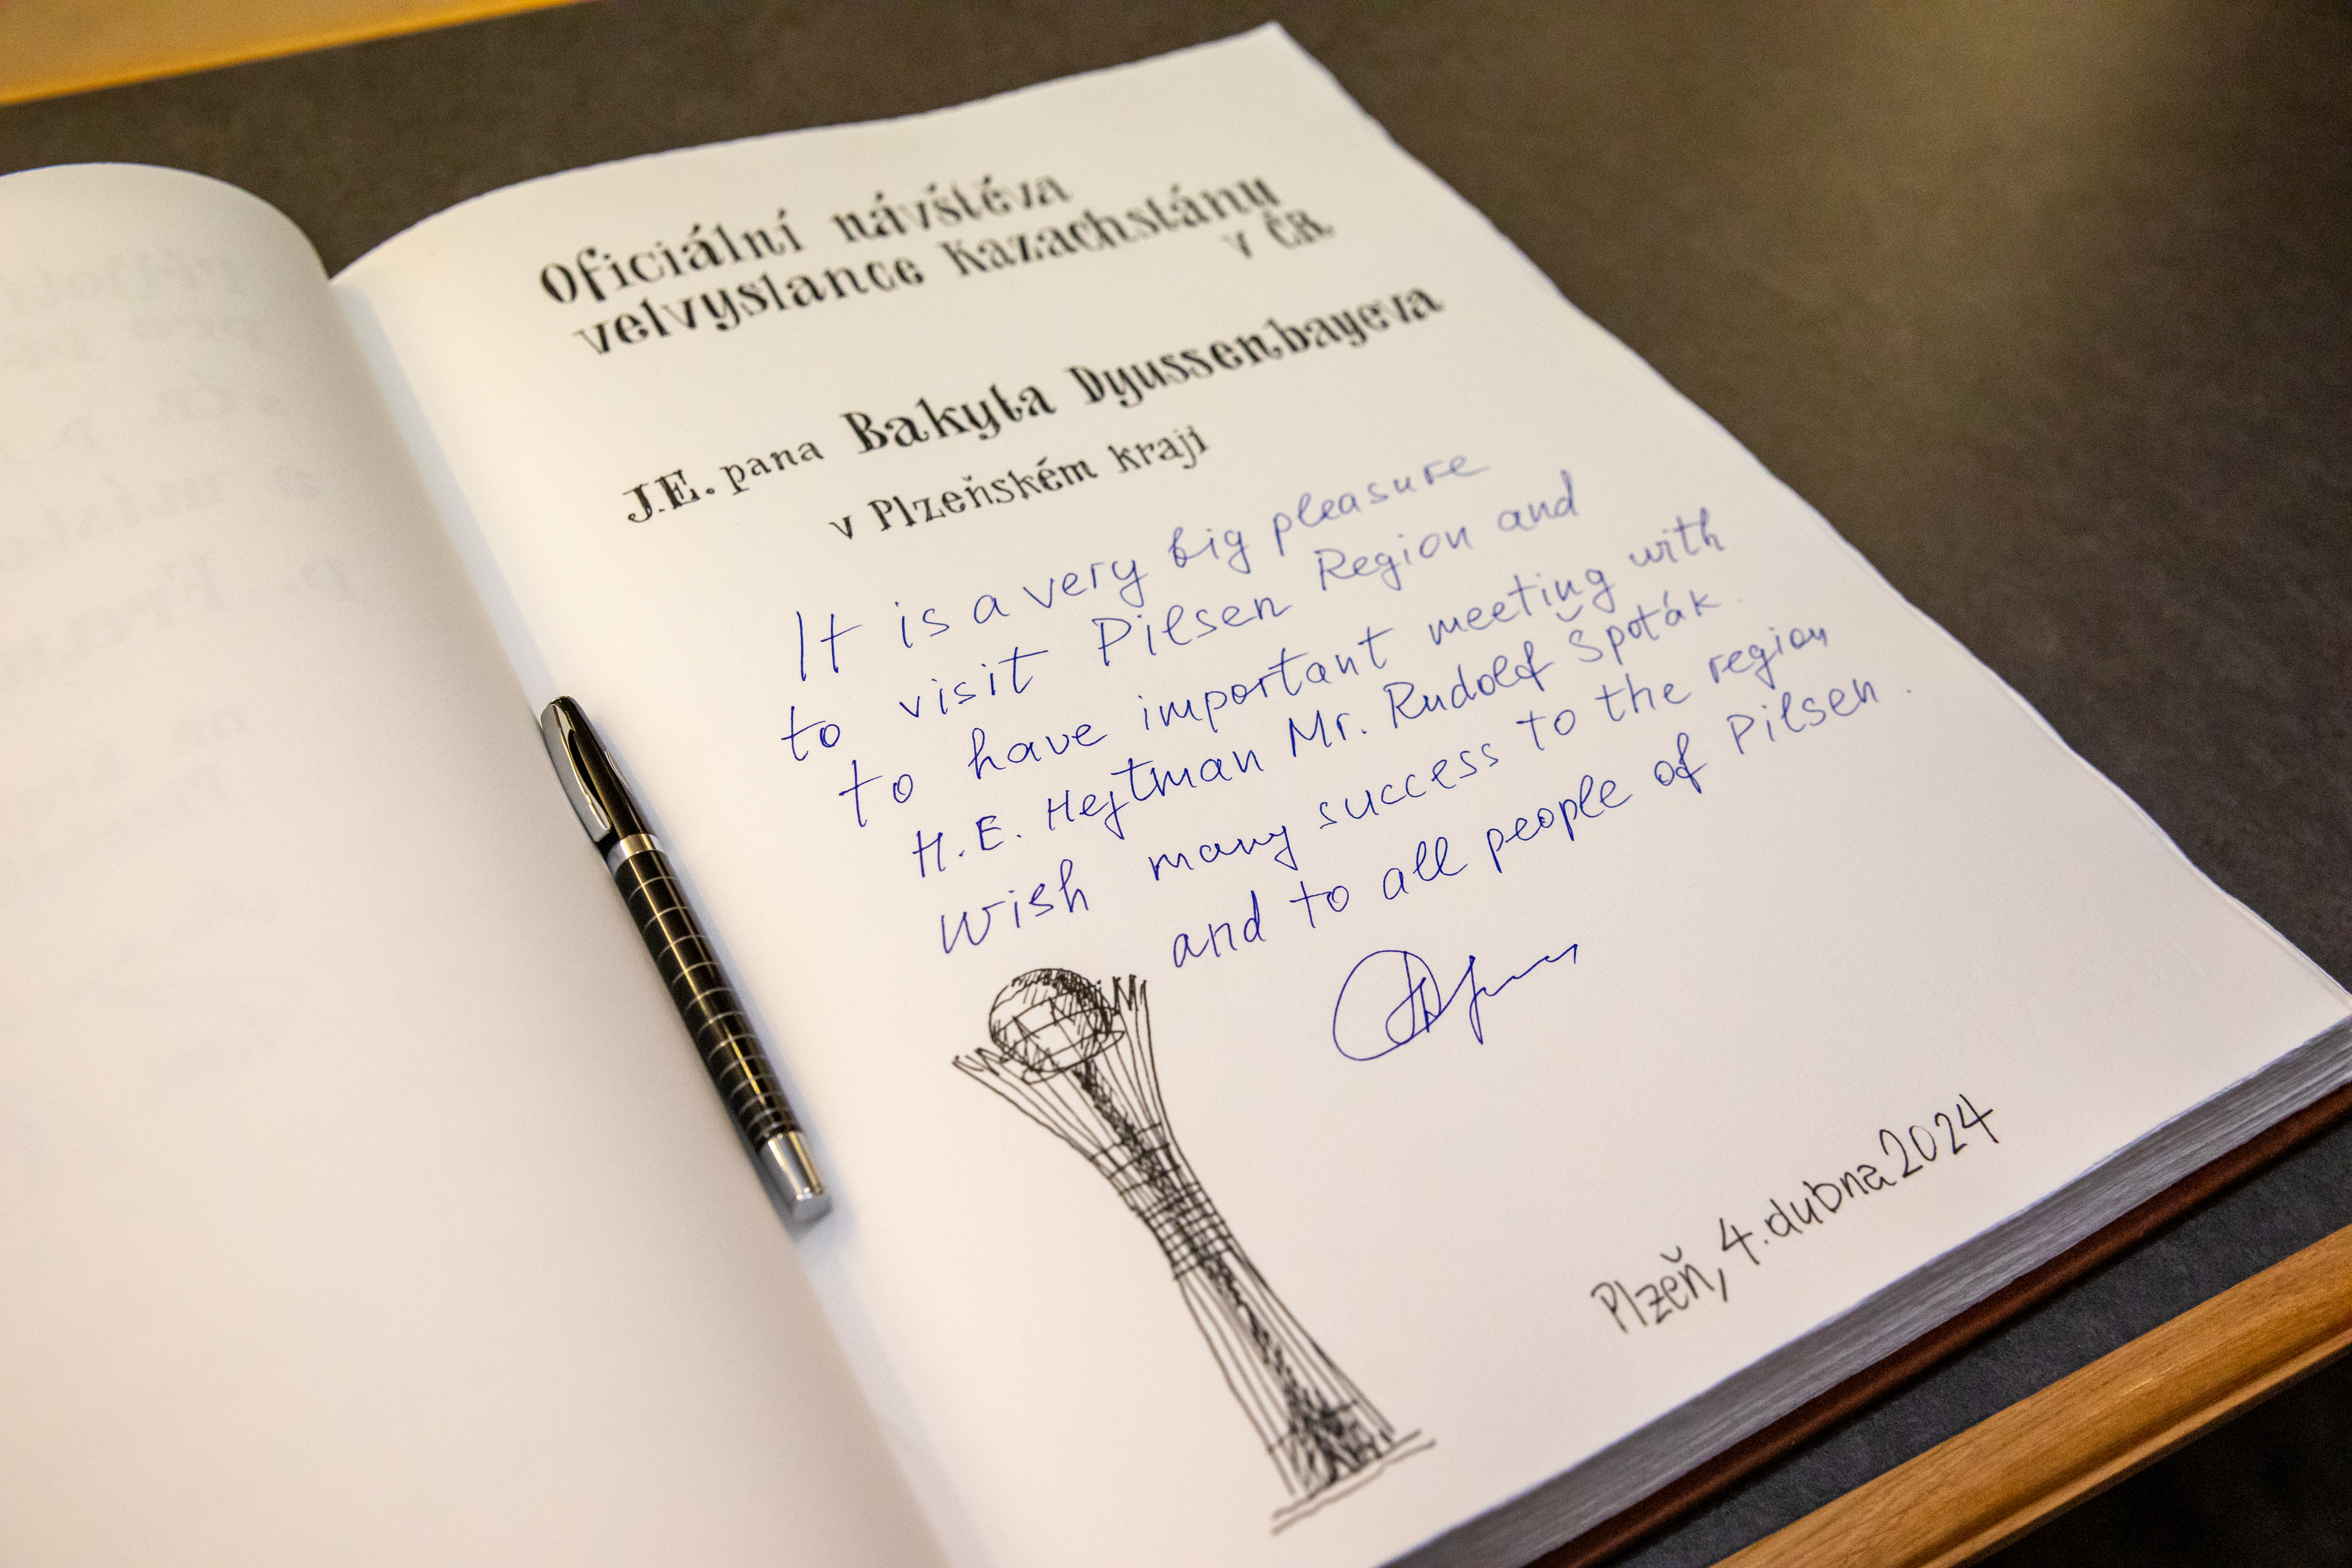 Oficiální návštěva
velvyslance Kazachstánu
v ČR
J.E. pana Bakyta Dyussenbayeva
v Plzeňském kraji
It is a very big pleasure
to visit Pilsen Region and
to have important meeting with
H.E. Hejtman Mr. Rudolf Špoták.
Wish many success to the region
and to all people of Pilsen.
Plzeň, 4. dubna 2024